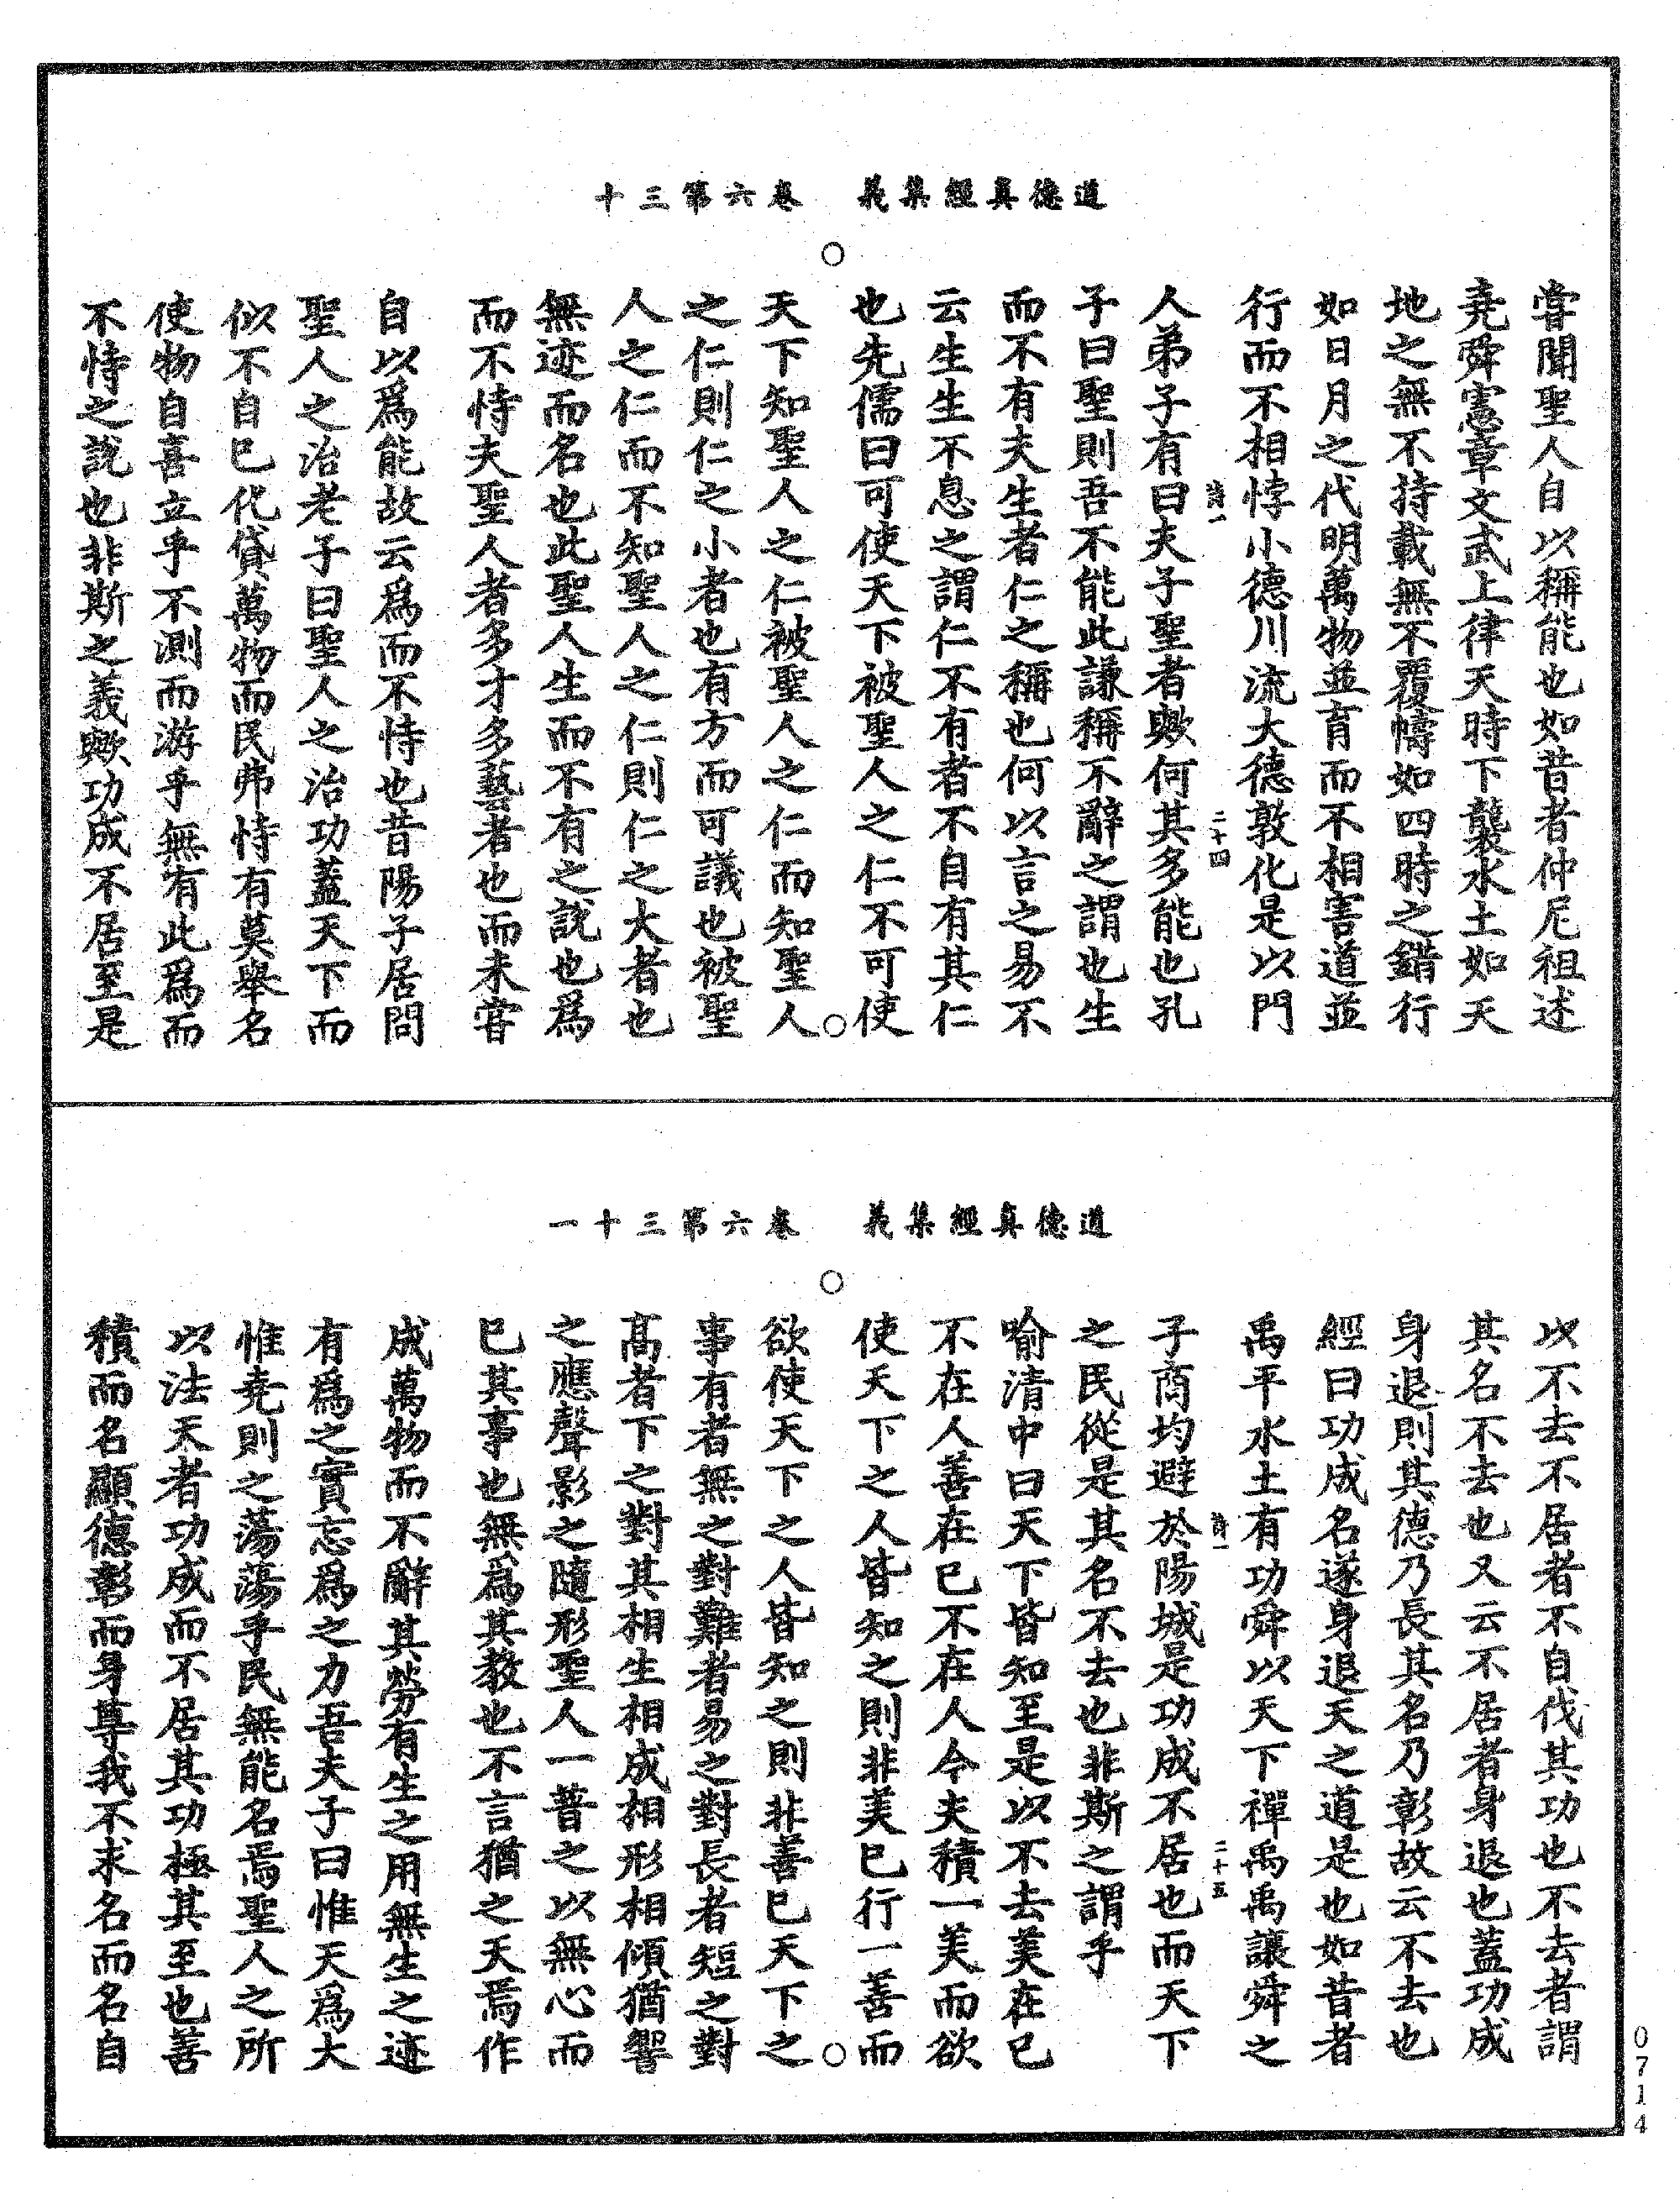 道德真經集義　卷六第三十
嘗聞聖人自以稱能也如昔者仲尼祖述
堯舜憲章文武上律天時下襲水土如天
地之無不持載無不覆幬如四時之錯行
如日月之代明萬物並育而不相害道並
行而不相悖小德川流大德敦化是以門
二十四
人弟子有曰夫子聖者歟何其多能也孔
子曰聖則吾不能此謙稱不辭之謂也生
而不有夫生者仁之稱也何以言之易不
云生生不息之謂仁不有者不自有其仁
也先儒曰可使天下被聖人之仁不可使
天下知聖人之仁被聖人之仁而知聖人
之仁則仁之小者也有方而可議也被聖
人之仁而不知聖人之仁則仁之大者也
無迹而名也此聖人生而不有之說也為
而不恃夫聖人者多才多藝者也而未嘗
自以爲能故云爲而不恃也昔陽子居問
聖人之治老子曰聖人之治功蓋天下而
似不自已化貸萬物而民弗恃有莫舉名
使物自喜立乎不測而游乎無有此爲而
不恃之說也非斯之義歟功成不居至是
道德真經集義　卷六第三十一
以不去不居者不自伐其功也不去者謂
其名不去也又云不居者身退也蓋功成
身退則其德乃長其名乃彰故云不去也
經曰功成名遂身退天之道是也如昔者
禹平水土有功舜以天下禪禹禹讓舜之
二十五
子商均避於陽城是功成不居也而天下
之民從是其名不去也非斯之謂乎
喻清中曰天下皆知至是以不去美在已
不在人善在已不在人今夫積一美而欲
使天下之人皆知之則非美已行一善而
欲使天下之人皆知之則非善已天下之
事有者無之對難者易之對長者短之對
高者下之對其相生相成相形相傾猶響
之應聲影之隨形聖人一普之以無心而
已其事也無爲其教也不言猶之天焉作
成萬物而不辭其勞有生之用無生之迹
有爲之實忘爲之力吾夫子曰惟天爲大
惟堯則之蕩蕩乎民無能名焉聖人之所
以法天者功成而不居其功極其至也善
積而名顯德彰而身尊我不求名而名自
0714